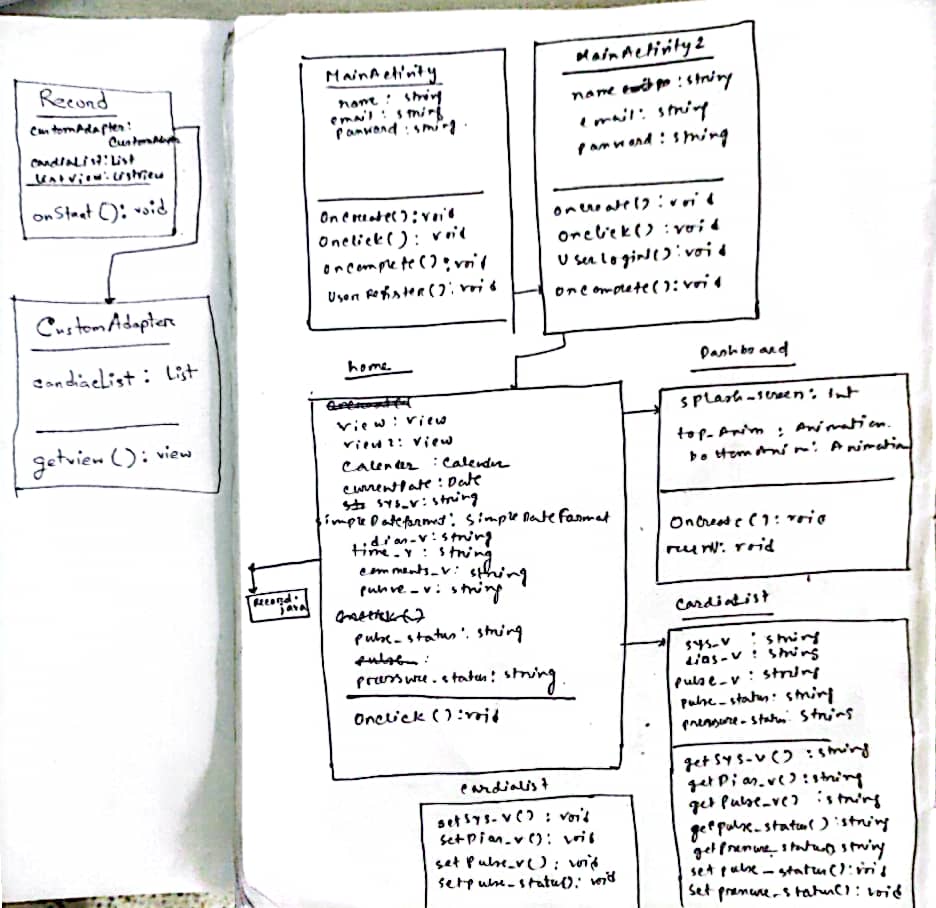 Record
CustomAdapter:
CustomAdapter
cardiaList: List
ListView: ListView
onStart(): void
CustomAdapter
cardiaeList: List
getview(): view
MainActivity
name: string
email: string
password: string.
OnCreate(): void
Onclick(): void
onComplete(): void
User Register(): void
MainActivity2
name : string
email: string
password: string
onCreate(): void
Onclick(): void
UserLogin(): void
OnComplete(): void
home
view: view
view2: view
Calender : Calender
currentDate: Date
sys_v: string
simpleDateformat: simpleDateFormat
dias_v: string
time_v: string
comments_v: string
pulse_v: string
Onclick()
pulse_status: string
pulse:
pressure_status: string.
Onclick(): void
Record.
java
Dashboard
splash_screen: Int
top_Anim: Animation.
bottomAnim: Animation
OnCreate(): void
run(): void
CardiaList
sys_v : string
dias_v : string
pulse_v: string
pulse_status: string
pressure_status: string
getSys_v(): string
getDias_v(): string
getPulse_v() : string
getpulse_status(): string
getPressure_status() string
set pulse_status(): void
set pressure_status(): void
cardialist
setSys_v(): void
setDias_v(): void
set Pulse_v(): void
setpulse_status(): void